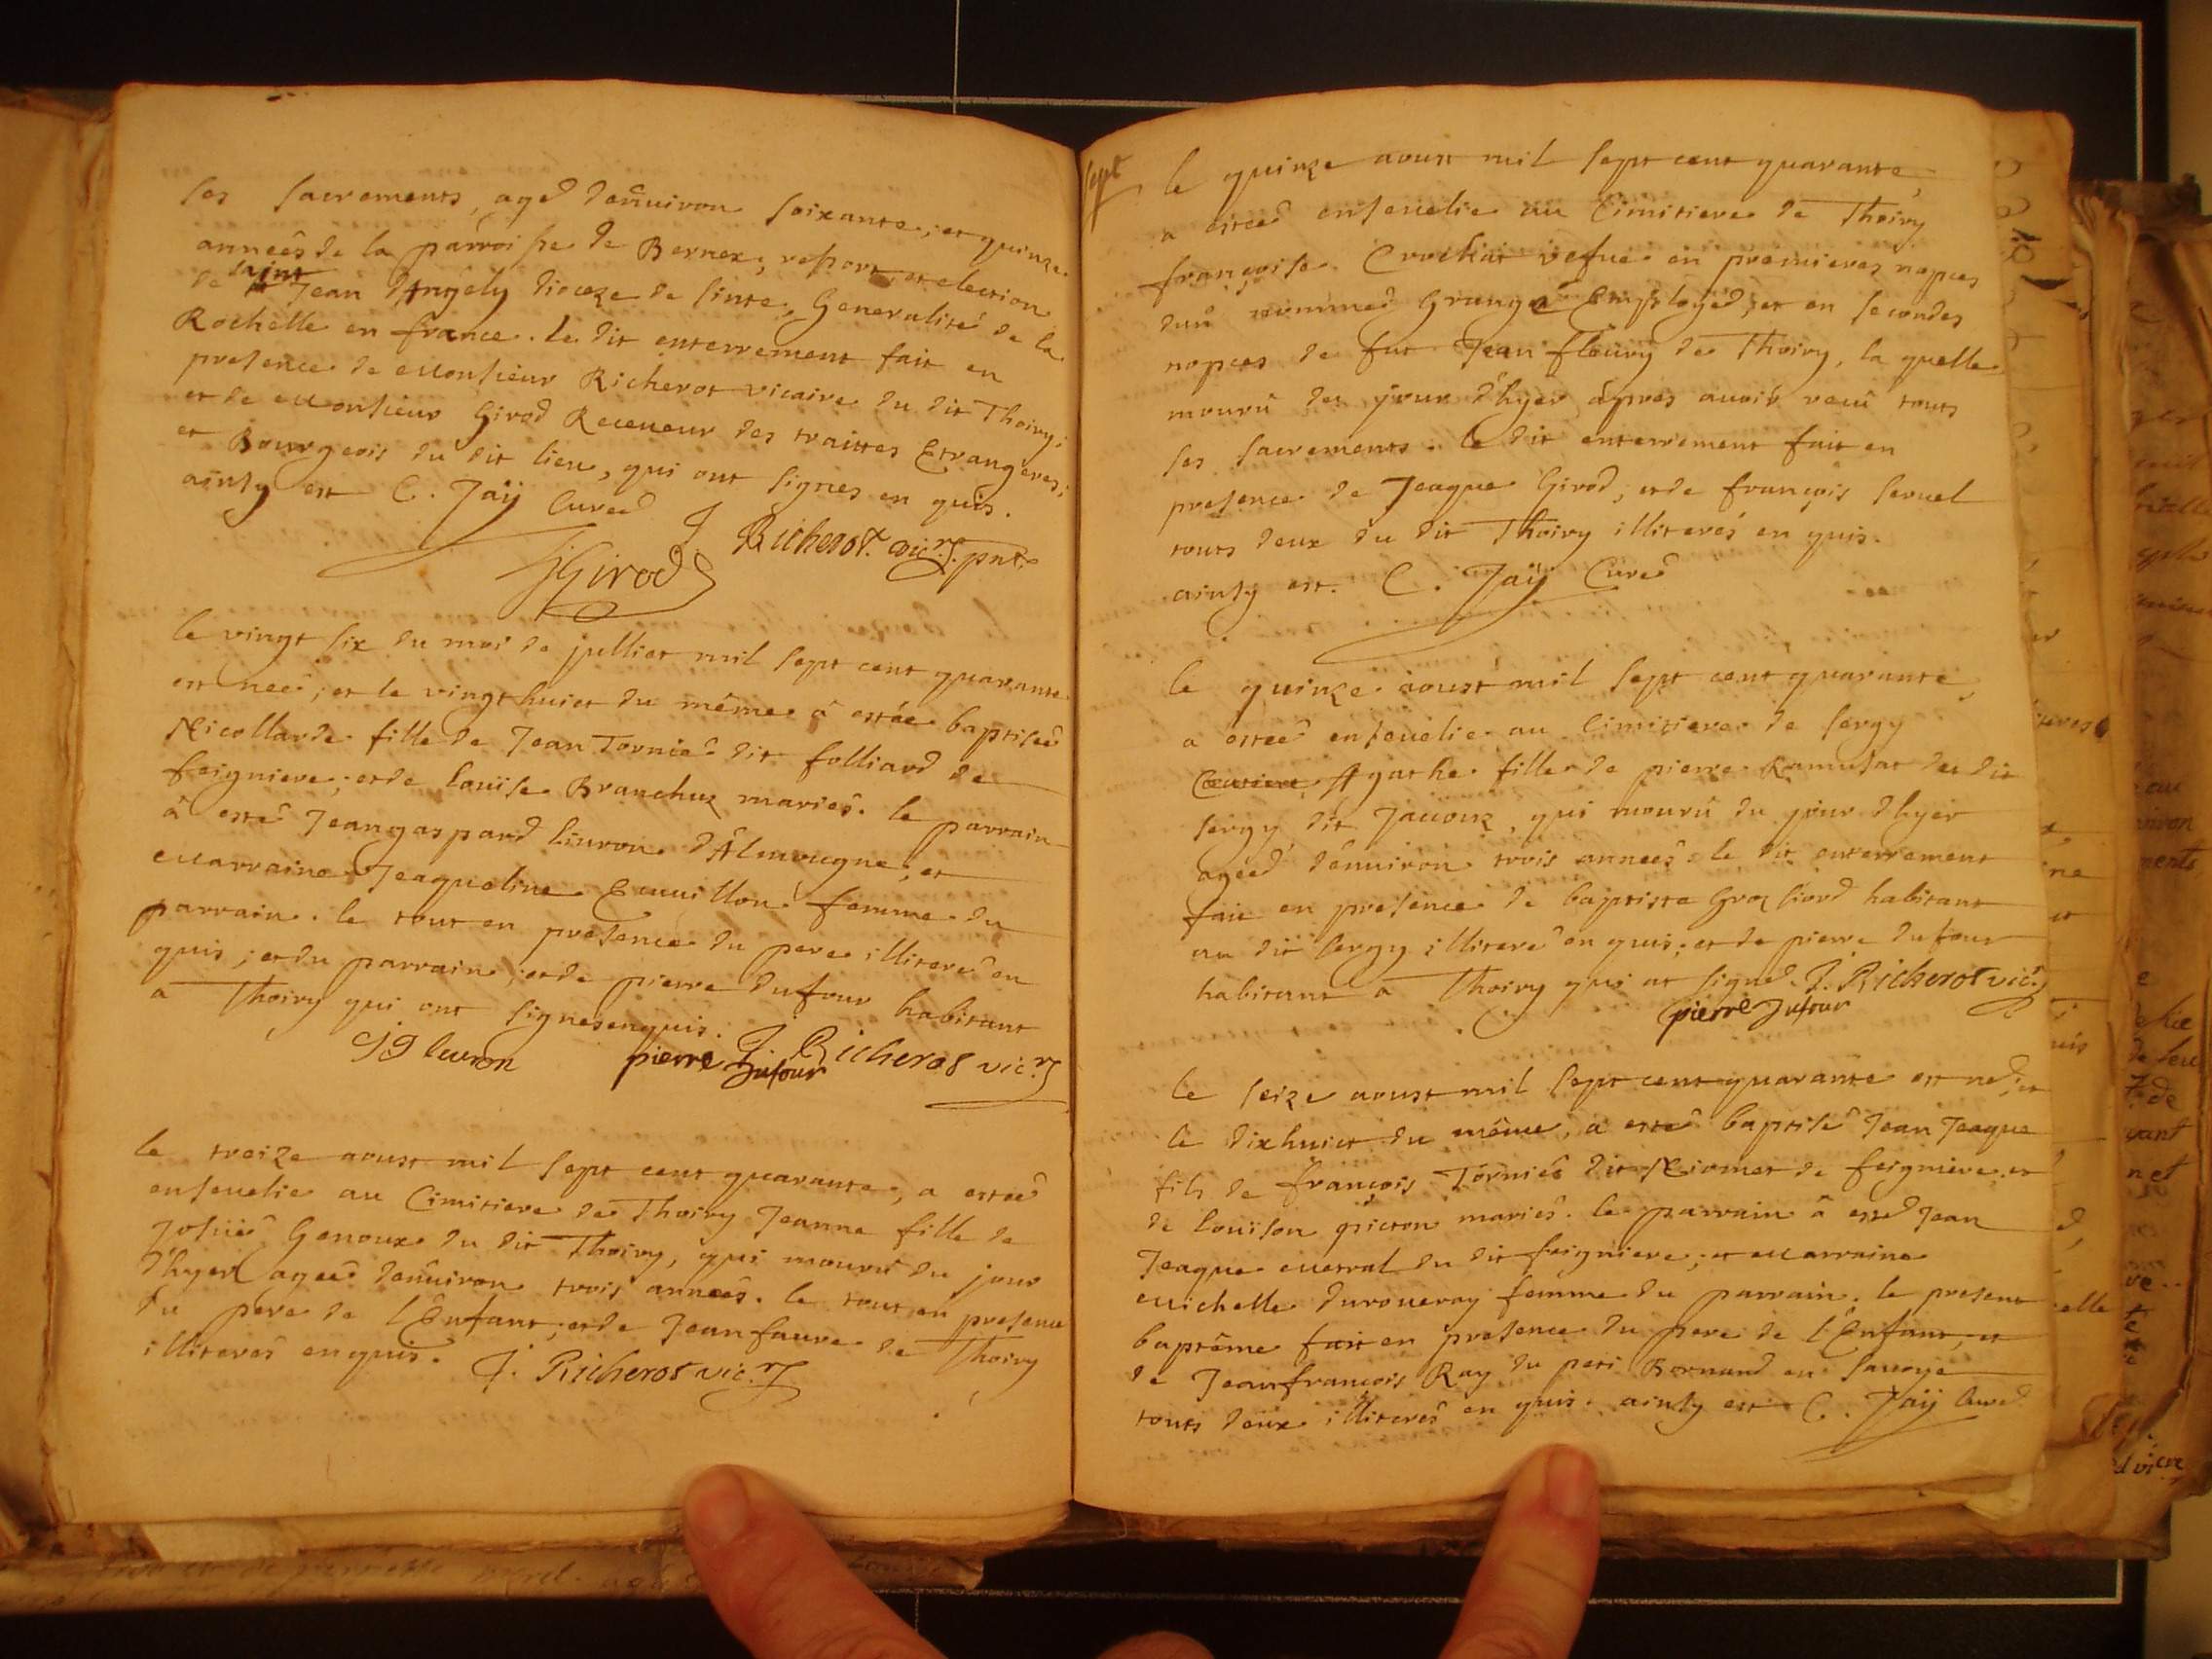 ses sacrements, aged denuiron soixante, et quinze
annees de la parroisse de Bernex, resort, et election
de saint Jean dAngely dioceze de sinte, Generalité de la
Rochelle en france. le dit enterrement fait en
presence de Monsieur Richerot vicaire du dit Thoiry;
et de Monsieur Girod Receueur des traittes Etrangeres;
et Bourgeois du dit lieu, qui ont signes en quis.
ainsy est C. Jaÿ Cured J. Richerot vicr. pnt.
Girod
le vingt six du moi de julliet mil sept cent quarante
est neé; et le vingthuict du même â estée baptiseé
Nicollarde fille de Jean Tornier dit folliard de
feigniere; et de louïse Branchuz mariés. le parrain
â esté Jeangaspard liuron d'Almorgne; et
Marraine Jeaqueline femme du
parrain. le tout en présence du pere illiteré en
quis; et du parrain; et de pierre Dufour habitant
a Thoiry qui ont signes enquis.
JG leuron pierre Dufour J. Richerot vicr.
le treize aoust mil sept cent quarante, a esteé
enseuelie au Cimitiere de Thoiry Jeanne fille de
Josué Genoux du dit Thoiry, qui mouru du jour
d'hyer ageé denuiron trois annees. le tout en presence
du père de l'Enfant; et de Jean faure de Thoiry
illiterés enquis. J. Richerot vicr.
sept
le quinze aoust mil sept cent quarante,
a esteé enseuelie au Cimitiere de Thoiry
françoise vefue en premieres nopces
dun nommé Granger Employed, et en secondes
nopces de fut Jean fleury de Thoiry, la quelle
mouru du jour d'hyer âpres auoir recu touts
ses sacrements. le dit enterrement fait en
presence de Jeaque Girod; et de françois seruel
touts deux du dit Thoiry illiterés en quis.
ainsy est. C. Jaÿ Cured
le quinze aoust mil sept cent quarante,
a esteé enseuelie au Cimitiere de sergy
Agathe fille de pierre Ramusat du dit
sergy dit Jacouz, qui mouru du jour dhyer
ageéd denuiron trois anneés. le dit enterrement
fait en presence de baptiste Grosliord habitant
au dit sergy illiteré en quis; et de pierre dufour
habitant a Thoiry qui at signé. J. Richerot vicr.
pierre Dufour
le seize aoust mil sept cent quarante est ned; et
le dixhuict du même, a esté baptisé Jean Jeaque
fils de françois Törnier dit de feigniere et
de louïson picton mariés. le parrain â ested Jean
Jeaque Mestral du dit feigniere; et Marraine
Michelle duroueray femme du parrain. le present
baptême fait en presence du pere de l'Enfant, et
de Jeanfrançois Ray du peti Bornand en sauoye
touts deux illiterés en quis. ainsy est C. Jaÿ Cured